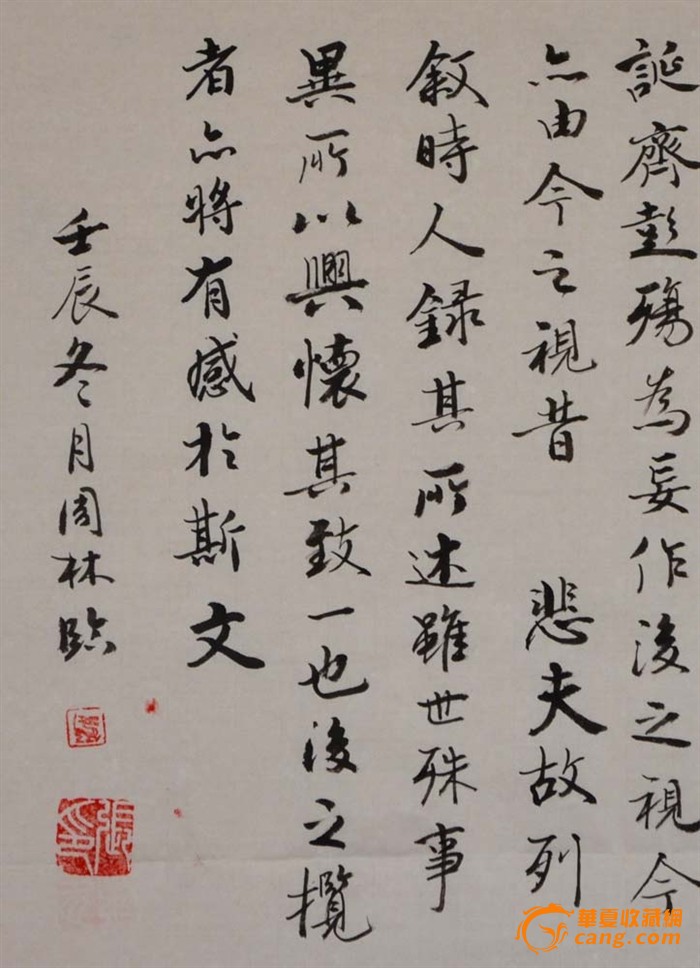 誕齊彭殤為妄作後之視今
亦由今之視昔 悲夫故列
叙時人録其所述雖世殊事
異所以興懷其致一也後之攬
者亦將有感於斯文
壬辰冬月周林臨
華夏收藏網
cang.com